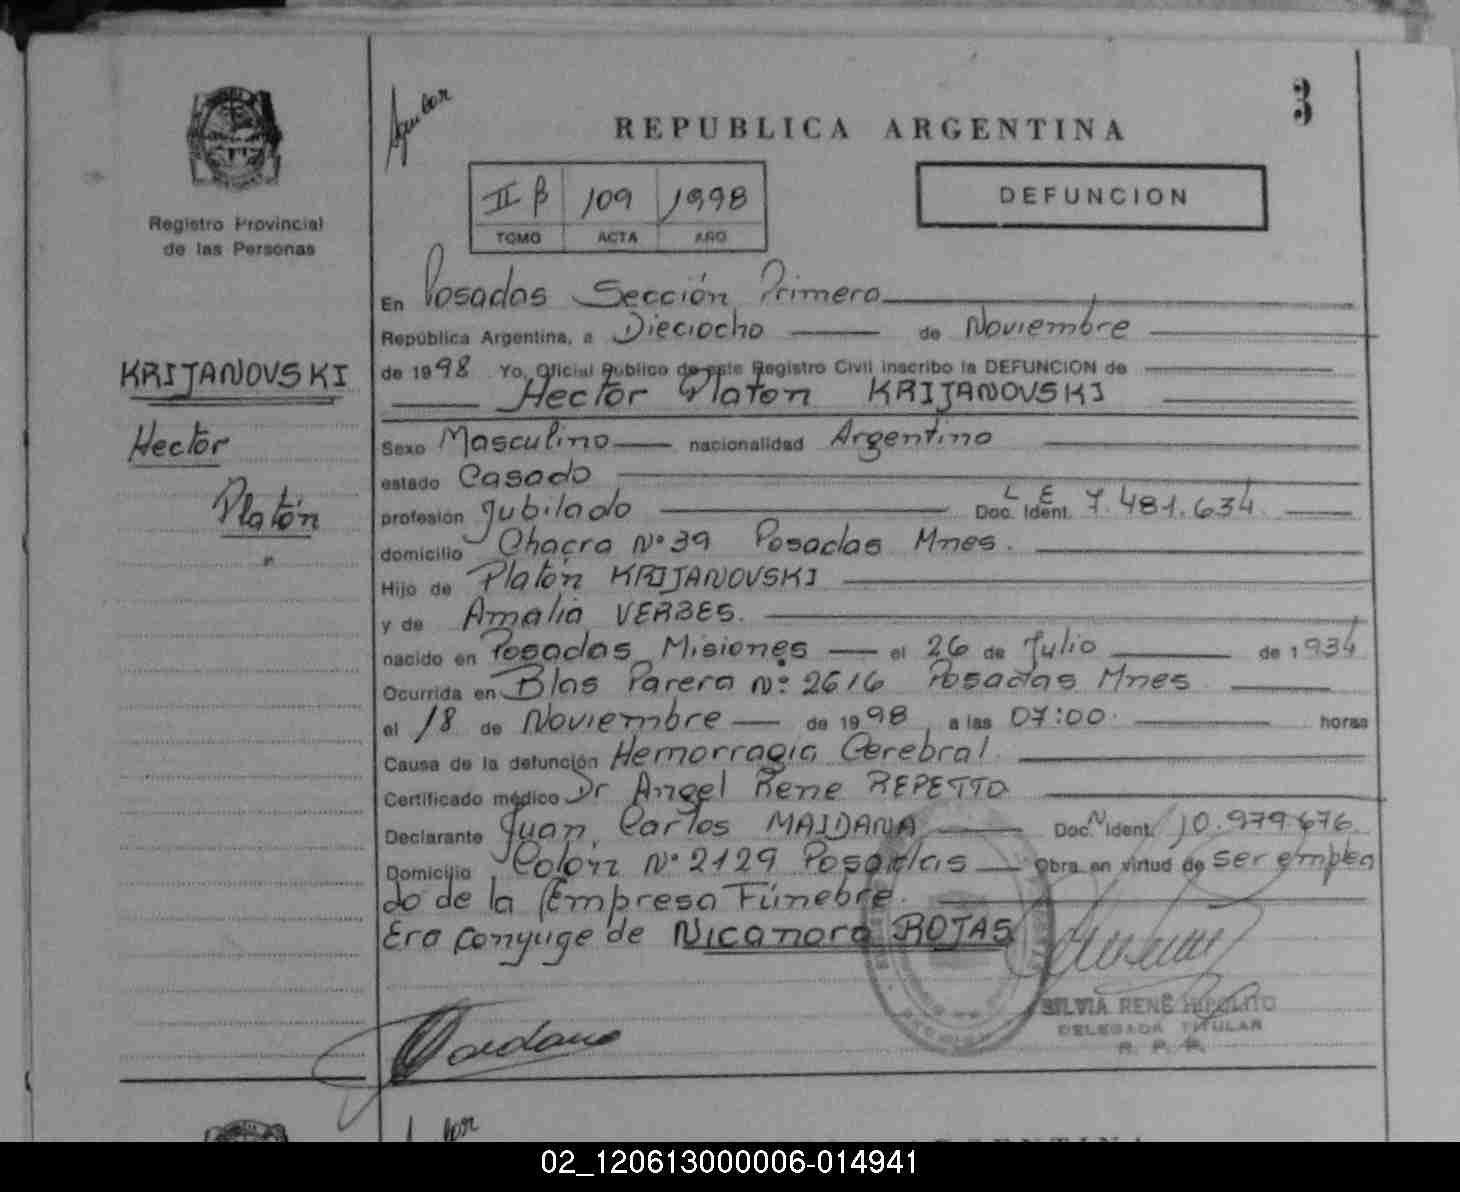 Aguilar
3
REPUBLICA ARGENTINA
II B 109 1998
TOMO ACTA AÑO
DEFUNCION
Registro Provincial
de las Personas
KRIJANOVSKI
Hector
Platón
En Posadas Sección Primera
República Argentina, a Dieciocho de Noviembre
de 1998 Yo, Oficial Público de este Registro Civil inscribo la DEFUNCION de
Hector Platon KRIJANOVSKI
Sexo Masculino nacionalidad Argentino
estado Casado
profesión Jubilado Doc. Ident. L E 7.481.634
domicilio Chacra Nº 39 Posadas Mnes.
Hijo de Platón KRIJANOVSKI
y de Amalia VERBES.
nacido en Posadas Misiones el 26 de Julio de 1934
Ocurrida en Blas Parera Nº 2616 Posadas Mnes
el 18 de Noviembre de 1998 a las 07:00. horas
Causa de la defunción Hemorragia Cerebral.
Certificado médico Dr Angel Rene REPETTO
Declarante Juan Carlos MAIDANA Doc. N ident. 10.979.676
Domicilio Colón Nº 2129 Posadas Obra en virtud de ser emplea
do de la Empresa Fúnebre.
Era conyuge de Nicanora ROJAS
SILVIA RENÉ HIPOLITO
DELEGADA TITULAR
R. P. P.
02_120613000006-014941